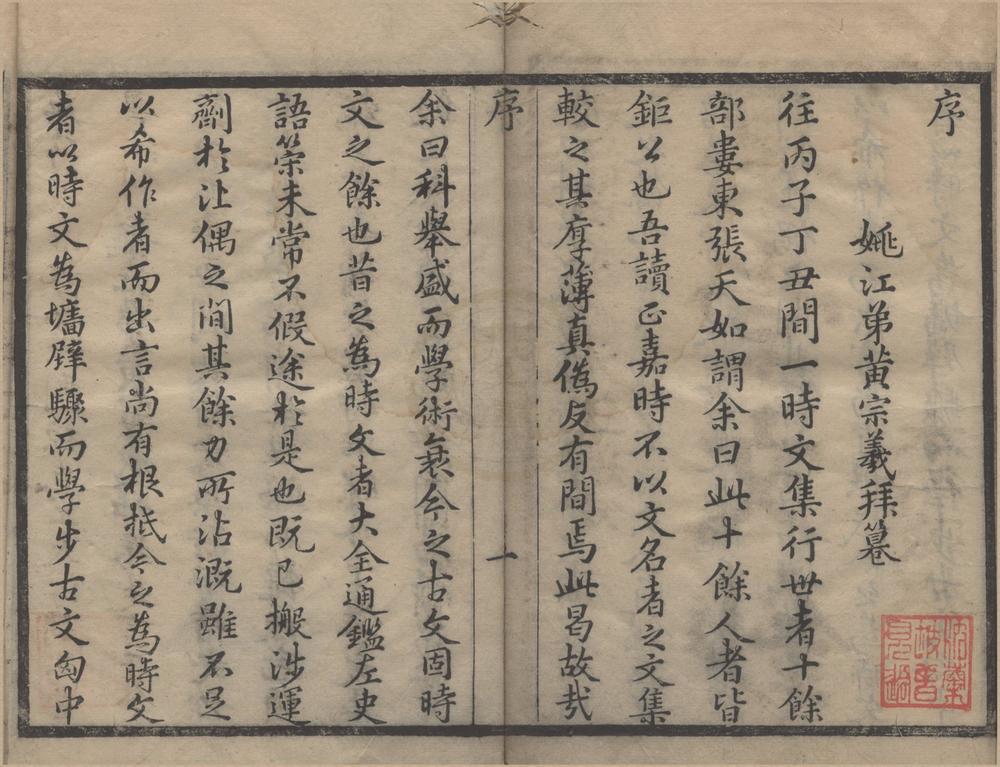 序
姚江弟黃宗羲拜篹
往丙子丁丑間一時文集行世者十餘
部婁東張天如謂余曰此十餘人者皆
鉅公也吾讀正嘉時不以文名者之文集
較之其厚薄真僞反有間焉此曷故哉
序
一
余曰科舉盛而學術衰今之古文固時
文之餘也昔之為時文者大全通鑑左史
語策未常不假途於是也既已搬涉運
劑於㳒偶之間其餘力所沾溉雖不足
以希作者而出言尚有根柢今之為時文
者以時文為墻壁驟而學步古文匈中